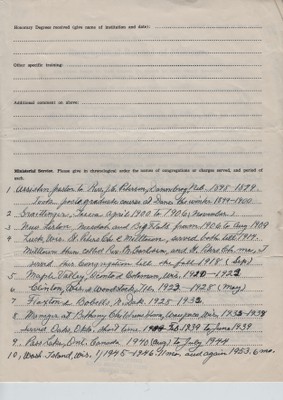 Honorary Degrees received (give name of institution and date):
Other specific training:
Additional comment on above:
Ministerial Service. Please give in chronological order the names of congregations or charges served, and period of each.
1 Assistant pastor to Rev. J. C. Peterson, Dannebrog Neb. 1898-1899.
Took postgraduate course at Dana the winter 1899-1900.
2 Graettinger, Iowa April 1900 to 1906, November
3 from 1906 to Aug 1909
4 Luck, Wis. St. Peters Ch. & Milltown, served both till 1914.
Milltown then called Rev. and St. Peters Ch. me, I
served this Congregation till the fall 1918 (Sept)
5 Maple Valley, Oconto & Coleman, Wis. 1920-1922
6 Clinton, Wis. & Woodstock, Ill. 1922-1928 (May)
7 Flaxton & Bobells N. Dak. 1928-1932
8 Manager at Bethany Waupaca, Wis. 1932-1939
served Oaks, Okla. short time 1939 to June 1939
9 Pass Lake, Ont. Canada 1940 (Aug) to July 1944
10, Wash. Island, Wis. 1945-1946 9 mon. and again 1953. 6 mo.